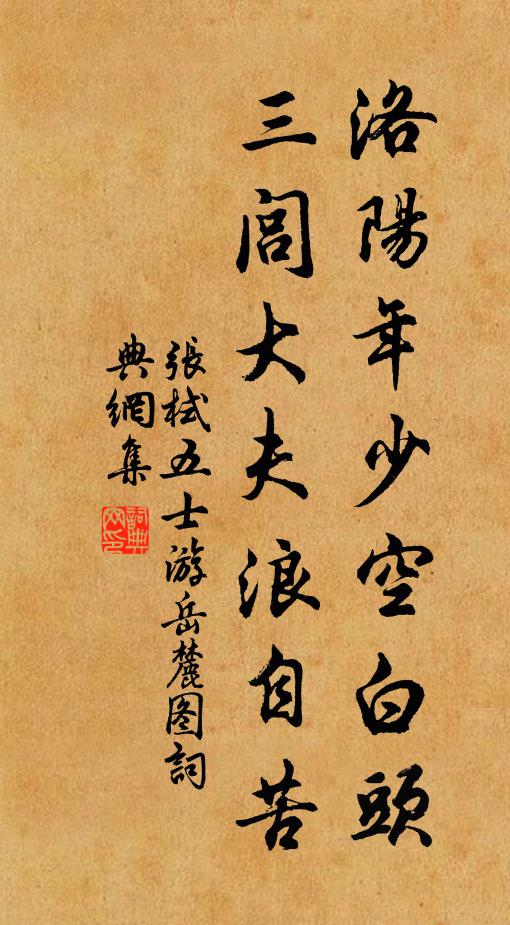 洛陽年少空白頭
三閭大夫浪自苦
張栻五士游岳麓图詞
典網集
詞典网印